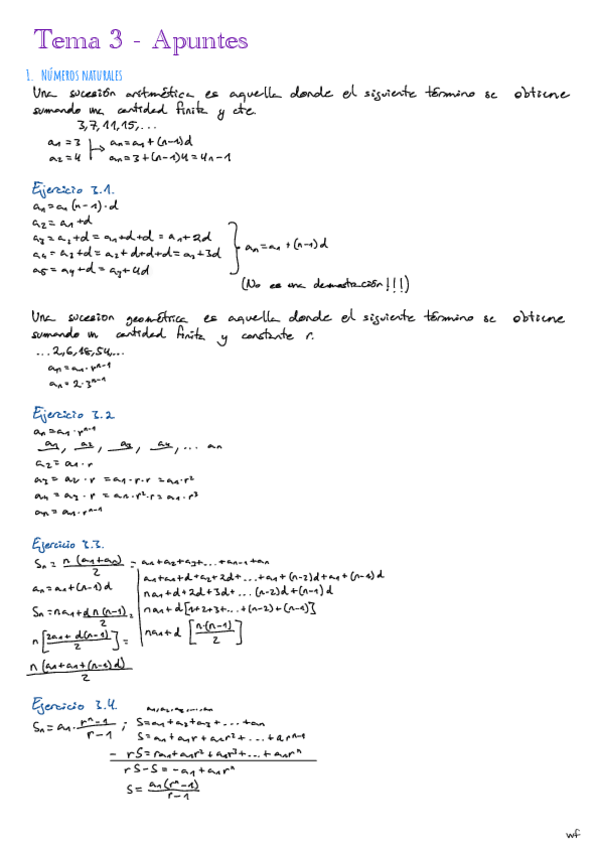 Tema 3 - Apuntes
1. NÚMEROS NATURALES
Una sucesión aritmética es aquella donde el siguiente término se obtiene
sumando una cantidad finita y cte.
3, 7, 11, 15, ...
a₁ = 3 → aₙ = a₁ + (n-1)d
a₂ = 4 aₙ = 3 + (n-1)4 = 4n - 1
Ejercicio 3.1.
aₙ = a₁ (n-1)·d
a₂ = a₁ + d
a₃ = a₂ + d = a₁ + d + d = a₁ + 2d
a₄ = a₃ + d = a₁ + d + d + d = a₁ + 3d
a₅ = a₄ + d = a₁ + 4d
aₙ = a₁ + (n-1)d
(No es una demostración!!!)
Una sucesion geométrica es aquella donde el siguiente término se obtiene
sumando un cantidad finita y constante r.
... 2, 6, 18, 54, ...
aₙ = a₁·rⁿ⁻¹
aₙ = 2·3ⁿ⁻¹
Ejercicio 3.2
aₙ = a₁·rⁿ⁻¹
a₁, a₂, a₃, a₄, ... aₙ
a₂ = a₁·r
a₃ = a₂·r = a₁·r·r = a₁·r²
a₄ = a₃·r = a₁·r²·r = a₁·r³
aₙ = a₁·rⁿ⁻¹
Ejercicio 3.3.
Sₙ = n (a₁+aₙ)/2 = a₁+a₂+a₃+...+aₙ₋₁+aₙ
aₙ = a₁+(n-1)d
Sₙ = na₁ + d n(n-1)/2 =
n [2a₁ + d(n-1)/2] =
n (a₁+a₁+(n-1)d)/2
a₁+a₁+d+a₁+2d+...+a₁+(n-2)d+a₁+(n-1)d
na₁+d+2d+3d+...(n-2)d+(n-1)d
na₁+d[1+2+3+...+(n-2)+(n-1)]
na₁+d [n·(n-1)/2]
Ejercicio 3.4.
a₁, a₂, a₃, ..., aₙ
Sₙ = a₁· rⁿ-1/r-1 ; S = a₁+a₂+a₃+...+aₙ
S = a₁+a₁r+a₁r²+...+a₁rⁿ⁻¹
- rS = ra₁+a₁r²+a₁r³+...+a₁rⁿ
rS-S = -a₁+a₁rⁿ
S = a₁(rⁿ-1)/r-1